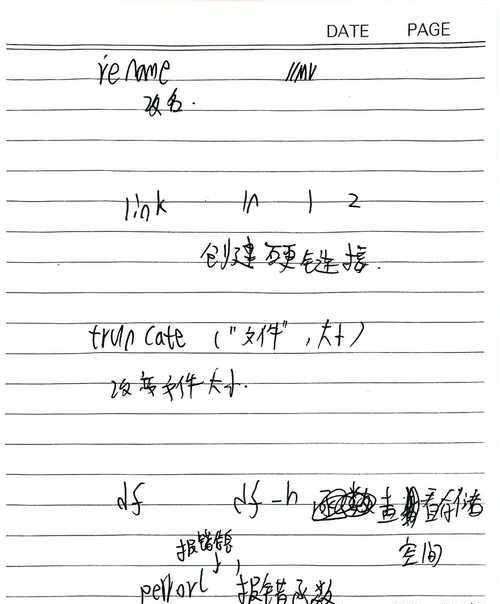 DATE PAGE
rename //mv
改名.
link ln 1 2
创建硬链接.
truncate ("文件",大小)
改变文件大小.
df df -h 查看存储
空间
报错
perror( 报错函数